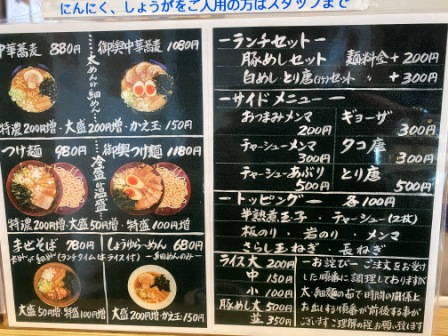 にんにく、しょうがをご入用の方はスタッフまで
中華蕎麦 880円
御輿中華蕎麦 1080円
太めんか細めん
特濃200円増・大盛200円増・かえ玉150円
つけ麺 980円
御輿つけ麺 1180円
冷盛か温盛
特濃200円増・大盛50円増・特盛100円増
まぜそば 780円
しょうゆらーめん 680円
(ランチタイムはライス付)
ー細めんのみー
大盛50円増・特盛100円増
大盛200円増・かえ玉150円
ーランチセットー
豚めしセット 麺料金+200円
白めしとり唐セット 〃 +300円
ーサイドメニューー
おつまみメンマ 200円
ギョーザ 300円
チャーシューメンマ 300円
タコ唐 300円
チャーシューあぶり 500円
とり唐 500円
ートッピングー 各100円
半熟煮玉子・チャーシュー(2枚)
板のり・岩のり・メンマ
さらし玉ねぎ・長ねぎ
ライス大 200円
中 150円
小 100円
豚めし大 500円
並 350円
ーお詫びーご注文をお受け
した順番に調理しておりますが
太・細麺の茹で時間の関係上
お出しする順番が前後する事が
ございます ご理解の程お願い致します